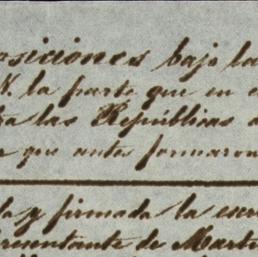 osiciones bajo la
N. la parte que en e
ta las Repúblicas
que antes formaron
da y firmada la escr
presentante de Marti